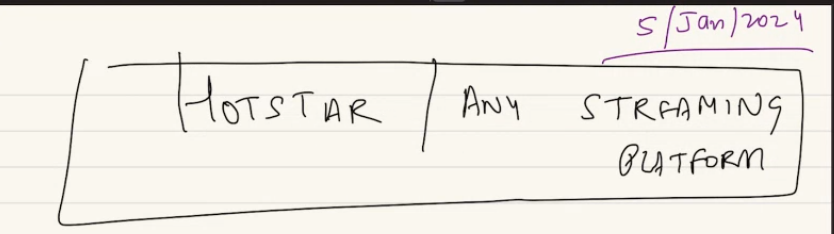 5/Jan/2024
HOTSTAR / ANY STREAMING
PLATFORM